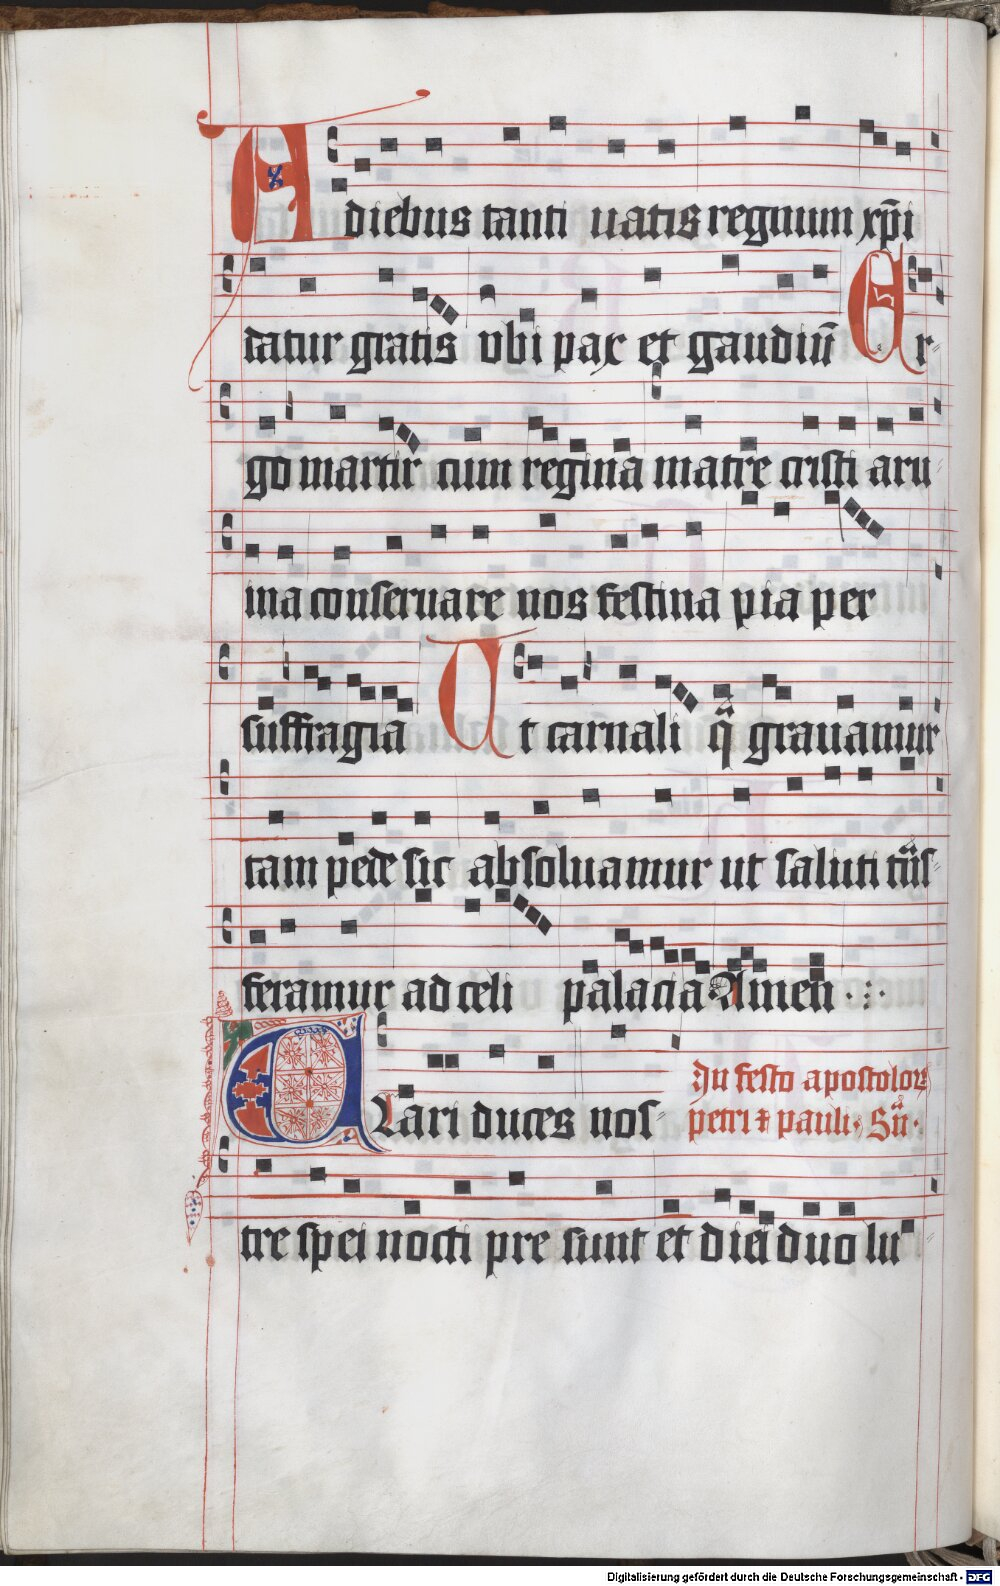 A diebus tanti uatis regnum xp̄i
datur gratis vbi pax et gaudiū Er-
go martir cum regina matre cristi aru
ina conseruare nos festina pia per
suffragia Ut carnali qͣ grauamur
tam pede sic absoluamur ut saluti
feramur ad celi palacia Amen
Clari duces nos-
In festo apostoloꝝ
petri ⁊ pauli
tre spei nocti pre sunt et diei duo lu
Digitalisierung gefördert durch die Deutsche Forschungsgemeinschaft - DFG